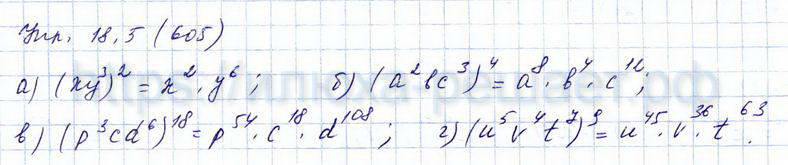 Упр. 18.5 (605)
а) (xy³)² = x² · y⁶ ; б) (a²bc³)⁴ = a⁸ · b⁴ · c¹² ;
в) (p³cd⁶)¹⁸ = p⁵⁴ · c¹⁸ · d¹⁰⁸ ; г) (u⁵v⁴t⁷)⁹ = u⁴⁵ · v³⁶ · t⁶³ .